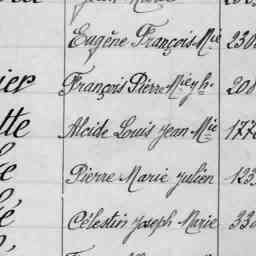 Eugène François Mie 230
ier François Pierre Mie 208
tte Alcide Louis Jean Mie 177
Pierre Marie Julien 123
é Célestin Joseph Marie 330